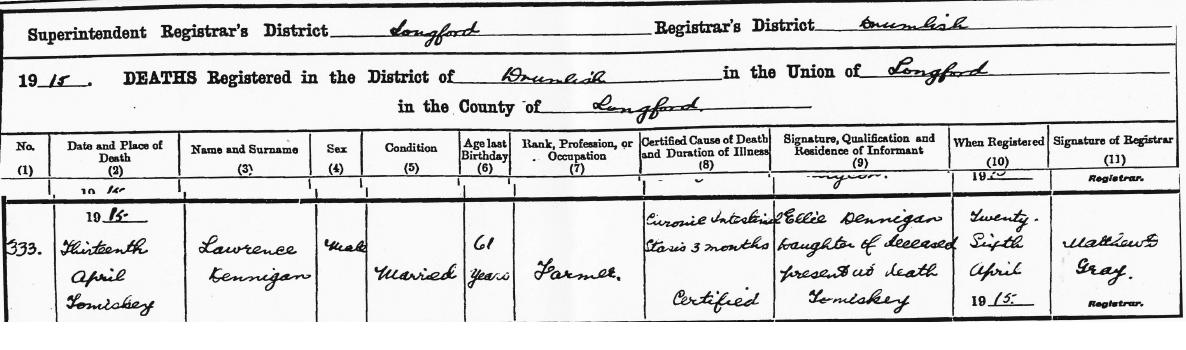 Superintendent Registrar's District Longford Registrar's District Drumlish
19 15. DEATHS Registered in the District of Drumlish in the Union of Longford
in the County of Longford.
No. Date and Place of Death Name and Surname Sex Condition Age last Birthday Rank, Profession, or Occupation Certified Cause of Death and Duration of Illness Signature, Qualification and Residence of Informant When Registered Signature of Registrar
(1) (2) (3) (4) (5) (6) (7) (8) (9) (10) (11)
Registrar.
1915 Intestinal Ellie Dennigan Twenty.
333. Thirteenth Lawrence Male 61 Stasis 3 months Daughter of deceased Sixth Matthew
April Dennigan Married Years Farmer. present at death April Gray.
Tomiskey Certified Tomiskey 1915. Registrar.